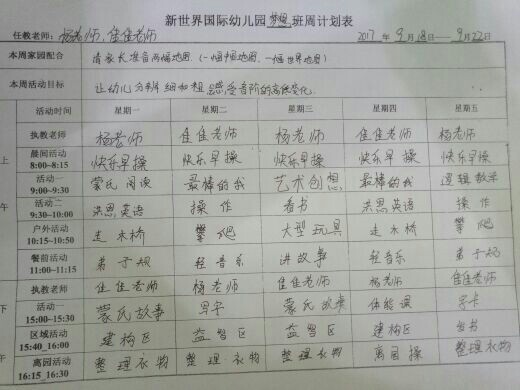 新世界国际幼儿园梦想班周计划表
任教老师：杨老师，佳佳老师 2017年9月18日——9月22日
本周家园配合 请家长准备两幅地图.（一幅中国地图.一幅世界地图）
本周活动目标 让幼儿分辨细和粗.感受音阶的高低变化.
活动时间 星期一 星期二 星期三 星期四 星期五
上午
执教老师 杨老师 佳佳老师 杨老师 佳佳老师 杨老师
晨间活动 8:00--8:15 快乐早操 快乐早操 快乐早操 快乐早操 快乐早操
活动一 9:00--9:30 蒙氏阅读 最棒的我 艺术创想 最棒的我 逻辑数学
活动二 9:30--10:00 洪恩英语 操作 看书 洪恩英语 操作
户外活动 10:15--10:50 走木桥 攀爬 大型玩具 走木桥 攀爬
餐前活动 11:00--11:15 弟子规 轻音乐 讲故事 轻音乐 弟子规
下午
执教老师 佳佳老师 杨老师 佳佳老师 杨老师 佳佳老师
活动一 15:00--15:30 蒙氏故事 写字 蒙氏故事 体能课
区域活动 15:40_16:00 建构区 益智区 益智区 建构区 看书
离园活动 16:15_16:30 整理衣物 整理衣物 整理衣物 离园操 整理衣物